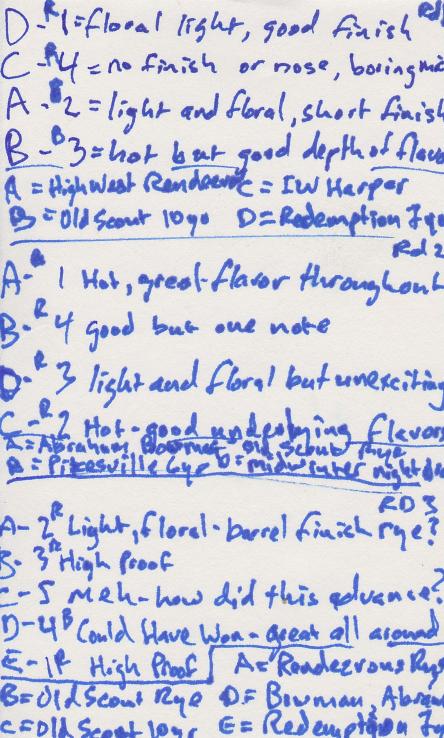 D-R 1=floral light, good finish Rd1
C-R 4 = no finish or nose, boring
A-B 2 = light and floral, short finish
B-B 3=hot but good depth of flavo
A = High West Rendezvous C = IW Harper
B = Old Scout 10yo D=Redemption 7yo
Rd 2
A-R 1 Hot, great flavor throughout
B-R 4 good but one note
D-R 3 light and floral but unexciting
C-R 2 Hot-good underlying flavors
A=Abraham Bowman C=Old Scout Rye
B = Pikesville 6yr D=midwinter night
RD 3
A- 2R Light, floral-barrel finish rye?
B- 3R High Proof
C-5 meh-how did this advance?
D-4B Could Have Won-great all around
E-1R High Proof A=Rendezvous Rye
B=Old Scout Rye D= Bowman, Abra
C=Old Scout 10yr E= Redemption